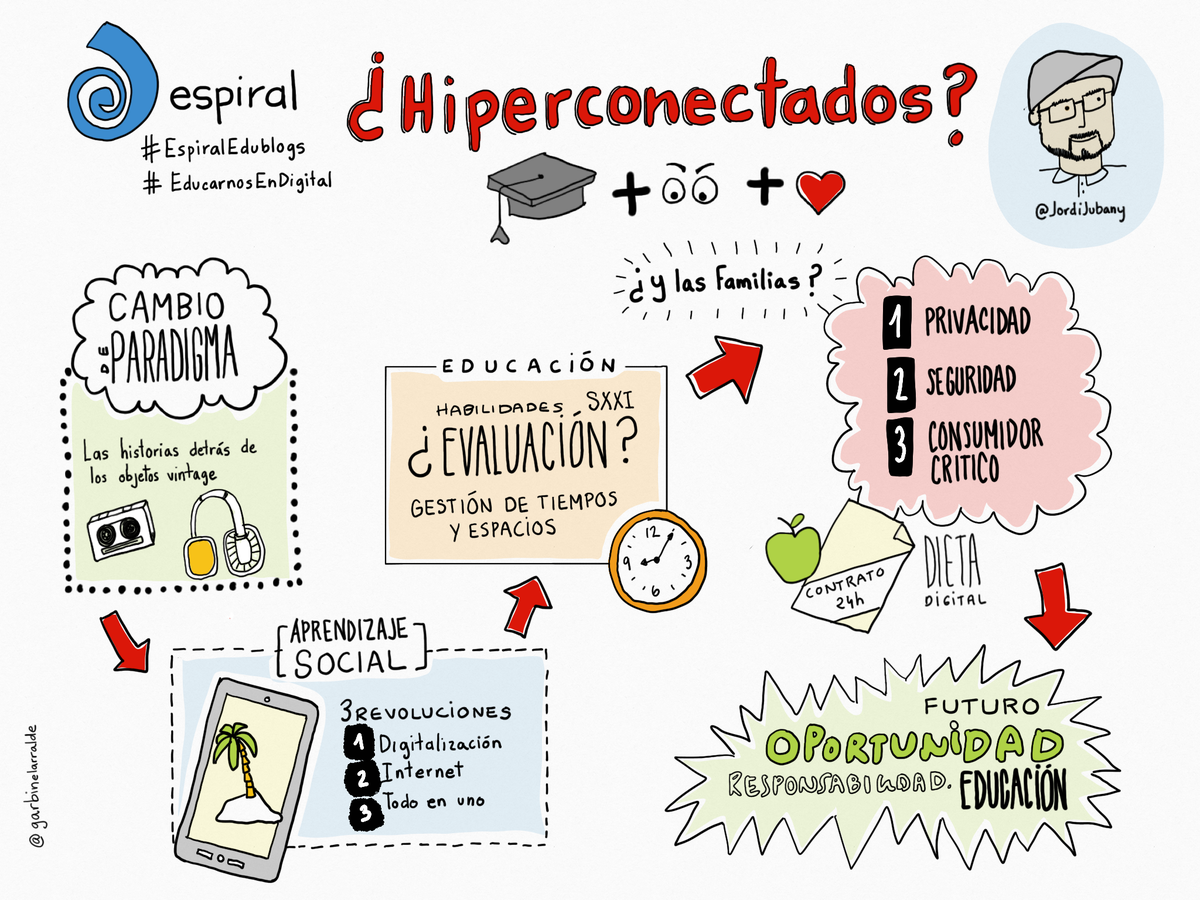 espiral
#EspiralEdublogs
# EducarnosEnDigital
¿Hiperconectados?
+ +
@JordiJubany
CAMBIO
DE PARADIGMA
Las historias detrás de
los objetos vintage
APRENDIZAJE
SOCIAL
3 REVOLUCIONES
1 Digitalización
2 Internet
3 Todo en uno
EDUCACIÓN
HABILIDADES SXXI
¿EVALUACIÓN?
GESTIÓN DE TIEMPOS
Y ESPACIOS
12
3
6
9
¿y las Familias?
1 PRIVACIDAD
2 SEGURIDAD
3 CONSUMIDOR
CRITICO
CONTRATO
24h
DIETA
DIGITAL
FUTURO
OPORTUNIDAD
RESPONSABILIDAD. EDUCACIÓN
@garbinelarralde